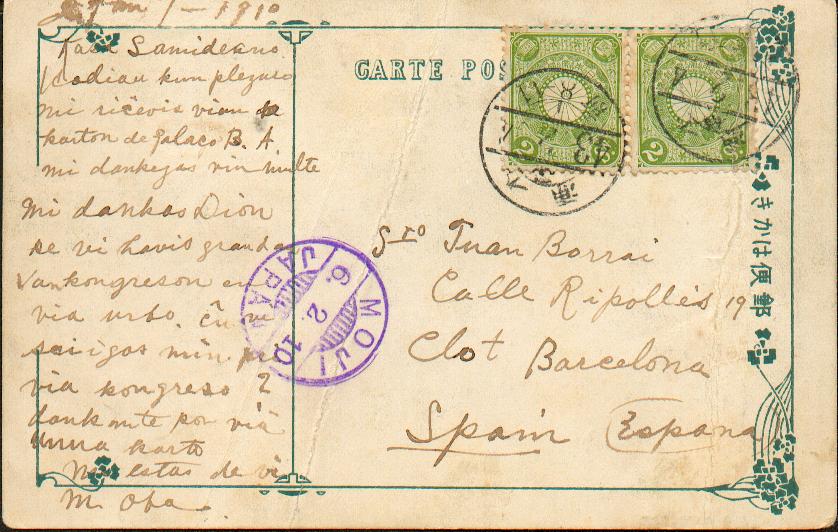 1 – 1910
Kara Samideano
kun plezuro
mi ricevis vian
karton de Palaco B. A.
mi dankegas vin multe
Mi dankas Dion
ke vi havis grandan
vankongreson en
via urbo. ĉu vi
sciigos min pri
via kongreso?
dankante por via
unua karto
Mi estas de vi
M. Oba
CARTE POS
きかは便郵
2 2
2 2
MOJI
6. 2. 10
JAPAN
Sro Juan Borrai
Calle Ripollés 19
Clot Barcelona
Spain (Espana